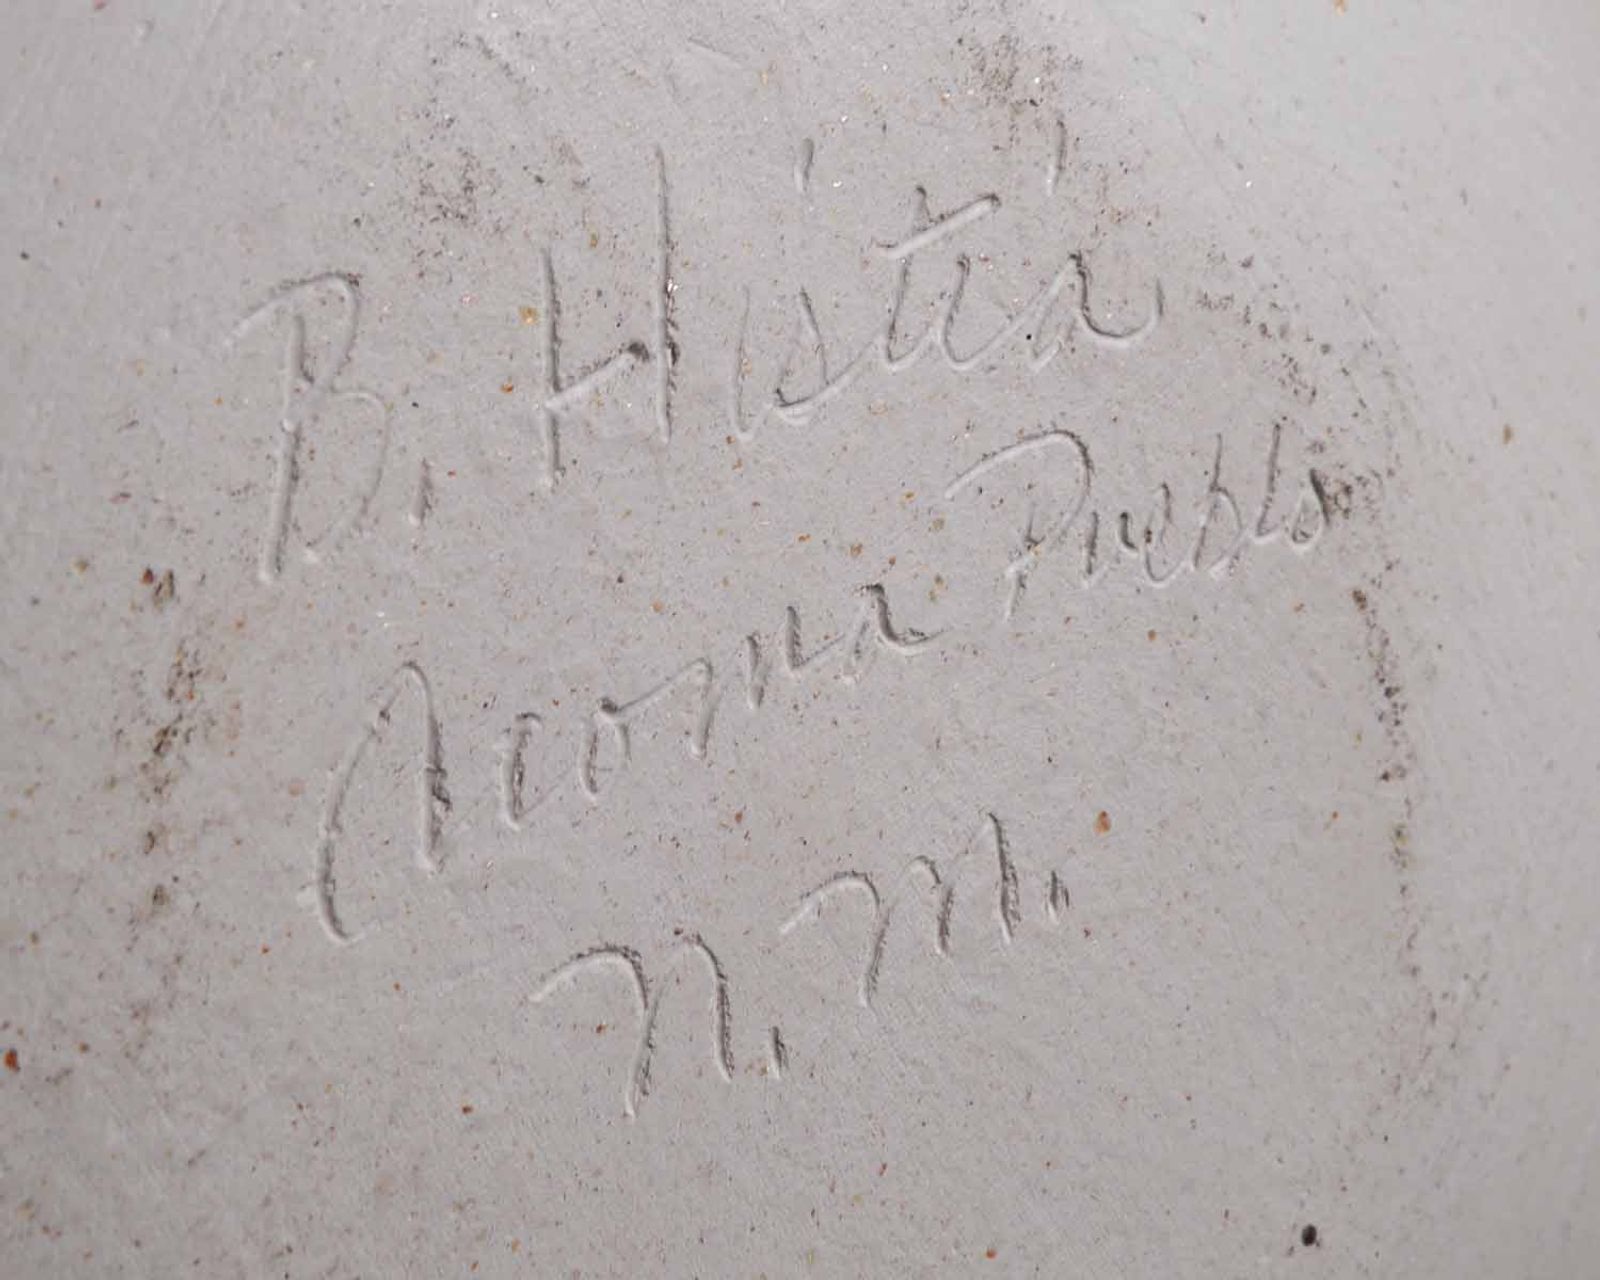 B. Histia
Acoma Pueblo
N. M.